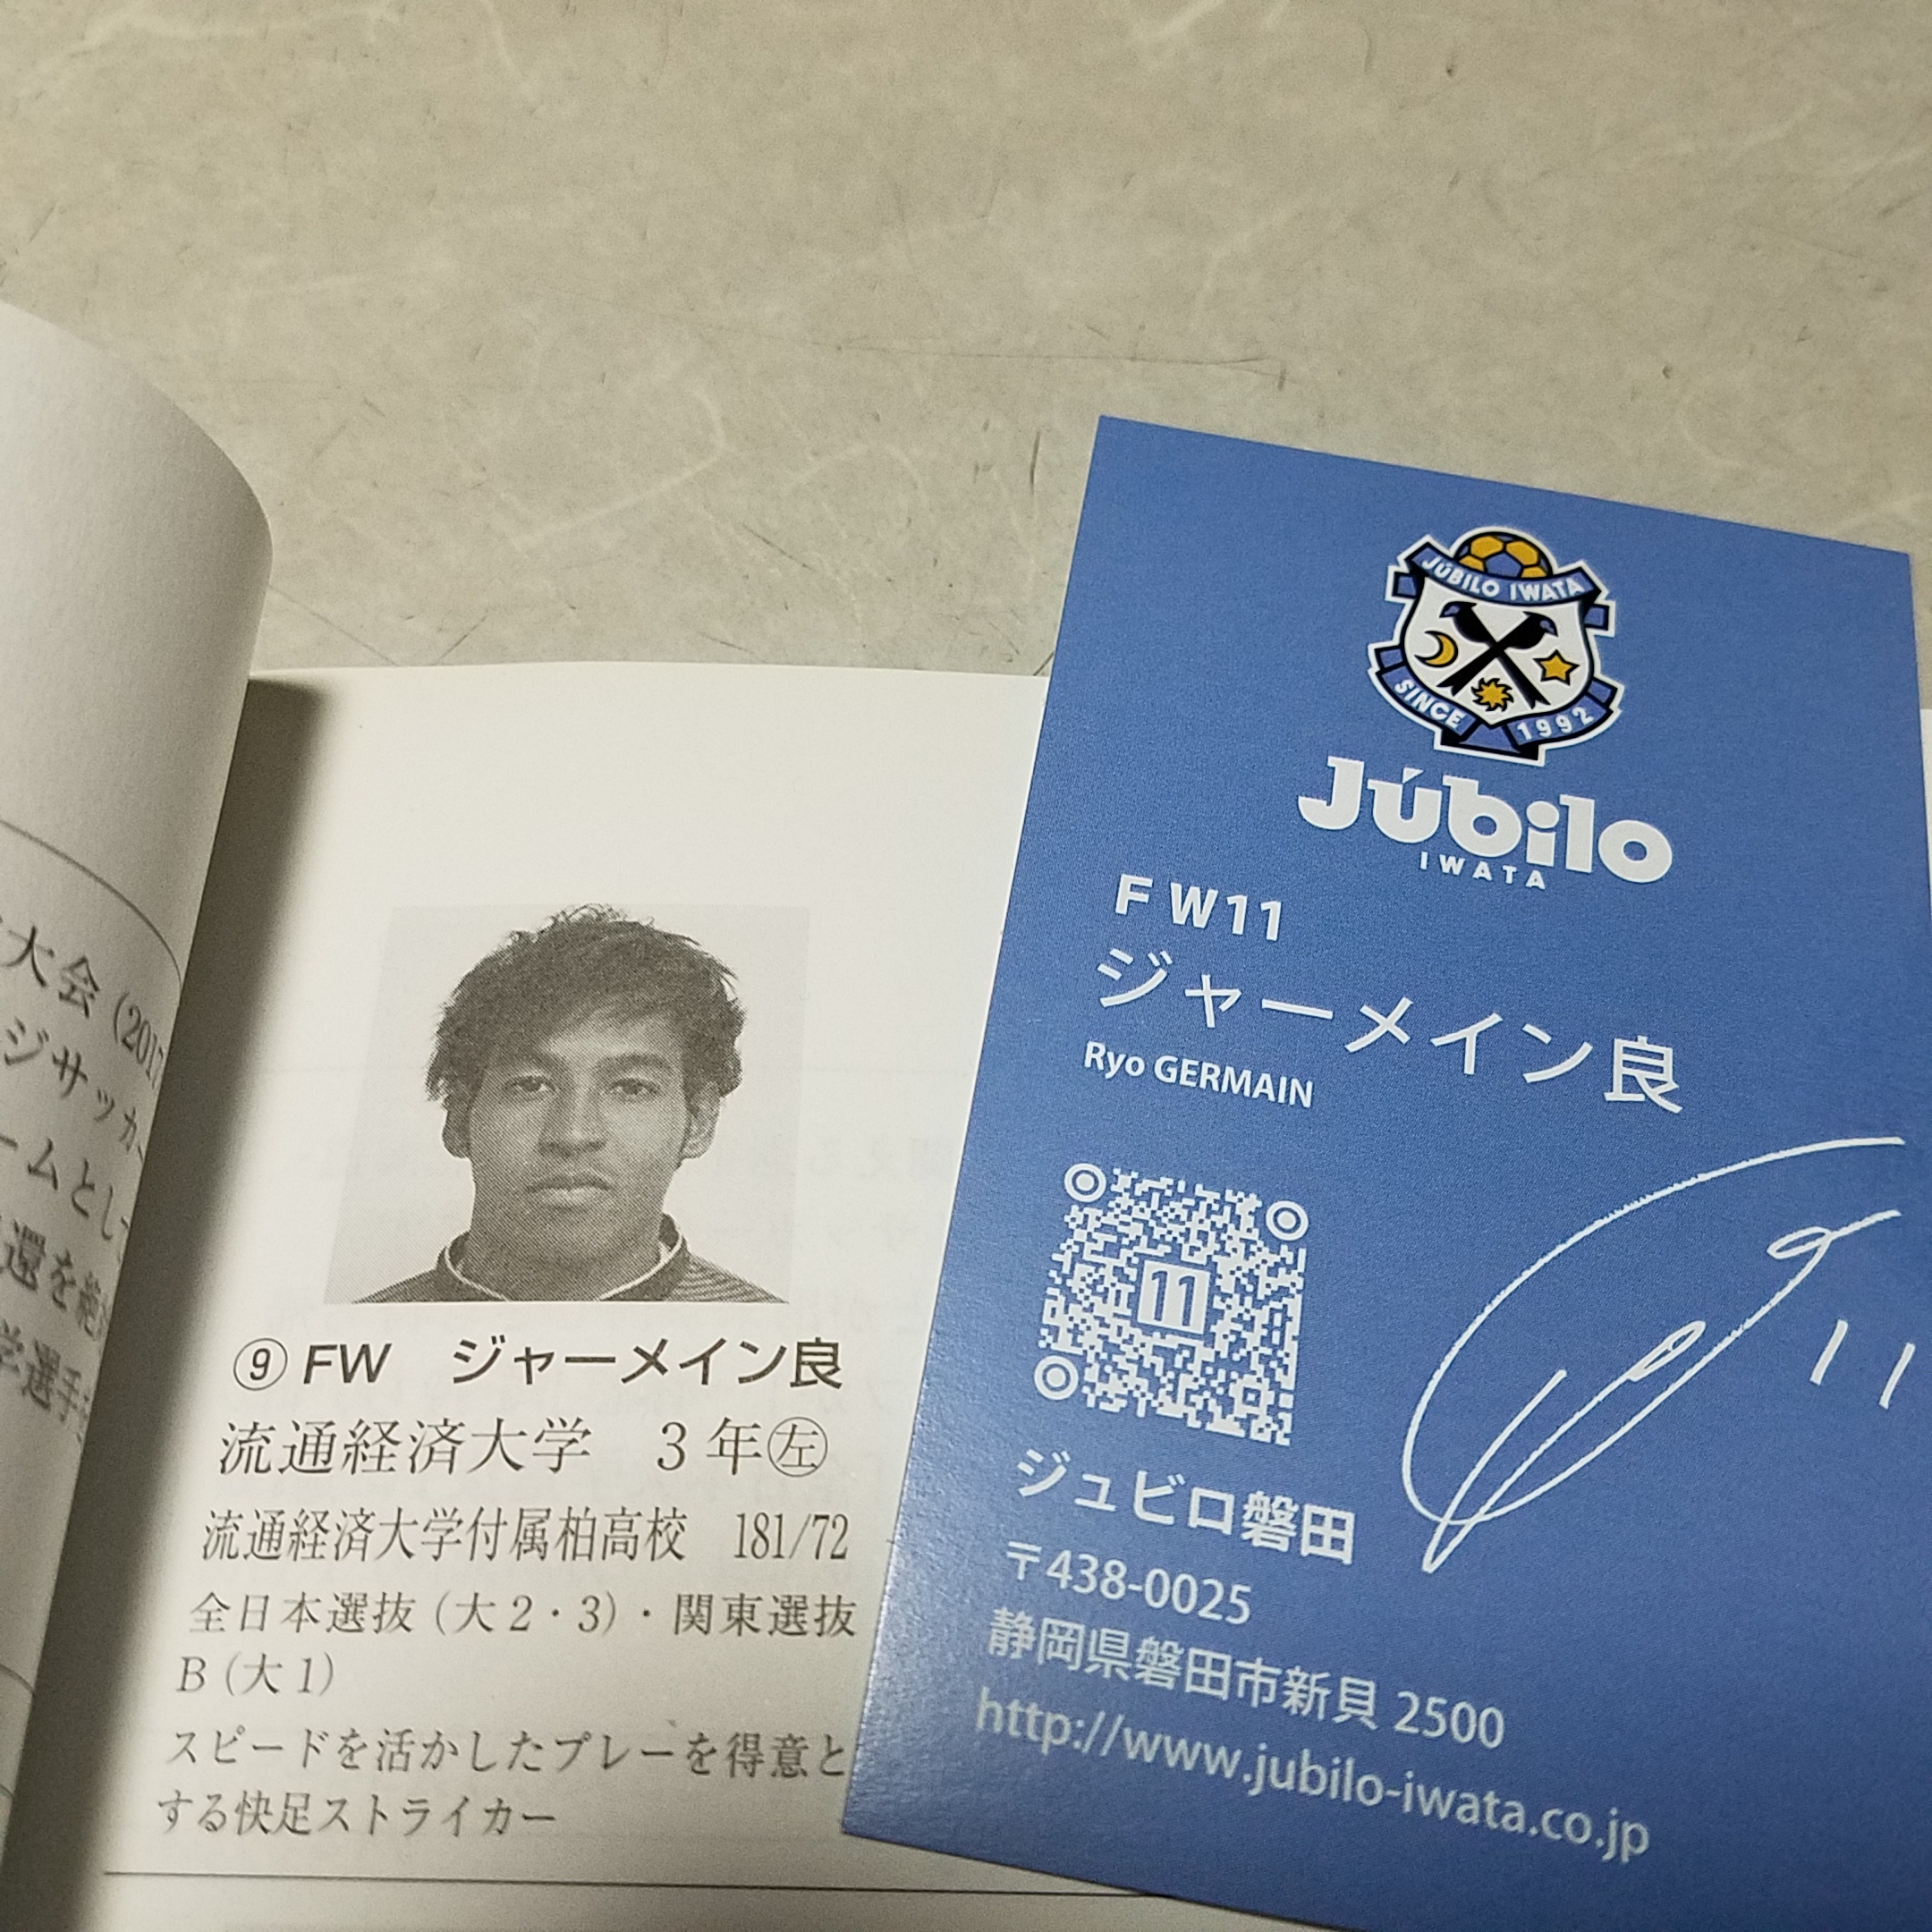 大会 (2017
ジサッカー
ームとし
還を絶
学選手
⑨ FW ジャーメイン良
流通経済大学 3年㊧
流通経済大学付属柏高校 181/72
全日本選抜 (大2・3)・関東選抜
B (大1)
スピードを活かしたプレーを得意と
する快足ストライカー
JÚBILO IWATA
SINCE 1992
Júbilo
IWATA
FW11
ジャーメイン良
Ryo GERMAIN
11
11
ジュビロ磐田
〒438-0025
静岡県磐田市新貝 2500
http://www.jubilo-iwata.co.jp